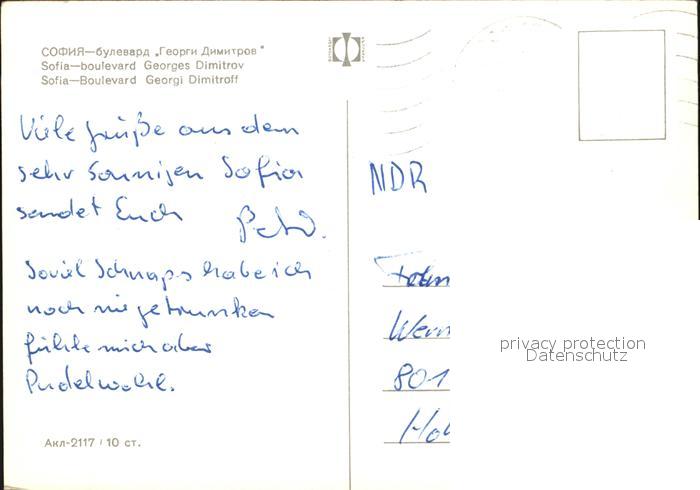 СОФИЯ—булевард „Георги Димитров"
Sofia—boulevard Georges Dimitrov
Sofia—Boulevard Georgi Dimitroff
Viele Grüße aus dem
sehr sonnigen Sofia
sendet Euch
Soviel Schnaps habe ich
noch nie getrunken
fühle mich aber
Pudelwohl.
Акл-2117 / 10 ст.
NDR
Wern
801
Hol
privacy protection
Datenschutz